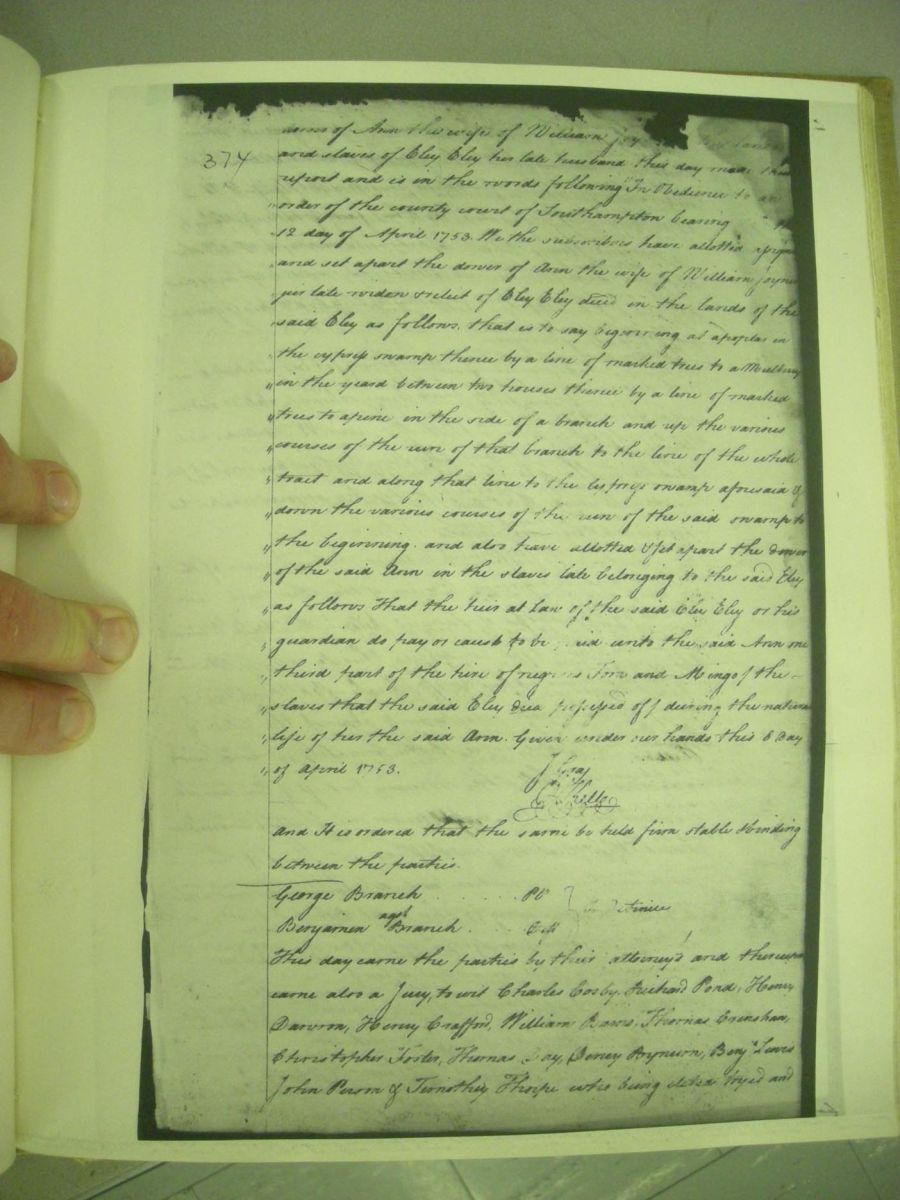 374
of Ann the wife of William
and slaves of Eley Eley her late husband this day made
report and is in the words following "In Obedience to an
" order of the county court of Southampton bearing
" 12 day of April 1753. We the subscribers have allotted
" and set apart the dower of Ann the wife of William Joyner
late widow & relict of Eley Eley decd in the lands of the
said Eley as follows. that is to say beginning at a poplar in
the cypress swamp thence by a line of marked trees to a Mulberry
" in the yeard between two houses thence by a line of marked
" trees to a pine in the side of a branch and up the various
" courses of the run of that branch to the line of the whole
" tract and along that line to the swamp aforesaid &
" down the various courses of the run of the said swamp to
" the beginning. and also have allotted & set apart the dower
" of the said Ann in the slaves late belonging to the said Eley
" as follows That the heir at Law of the said Eley Eley or his
" guardian do pay or cause to be unto the said Ann one
" third part of the hire of negroes Tom and Mingo (the
" slaves that the said Eley died possessed of) during the natural
" life of her the said Ann. Given under our hands this 6 Day
" of April 1753.
J Gray
And It is ordered that the same be held firm stable & binding
between the parties.
George Branch
agst
Benjamin Branch
This day came the parties by their attorneys and thereupon
came also a Jury, to wit Charles Cosby, Richard Pond, Henry
Dawson, Henry Crafford, William Thomas Crenshaw,
Christopher Foster, Thomas Benja Lewis
John Person & Timothy Thorpe who being tryed and